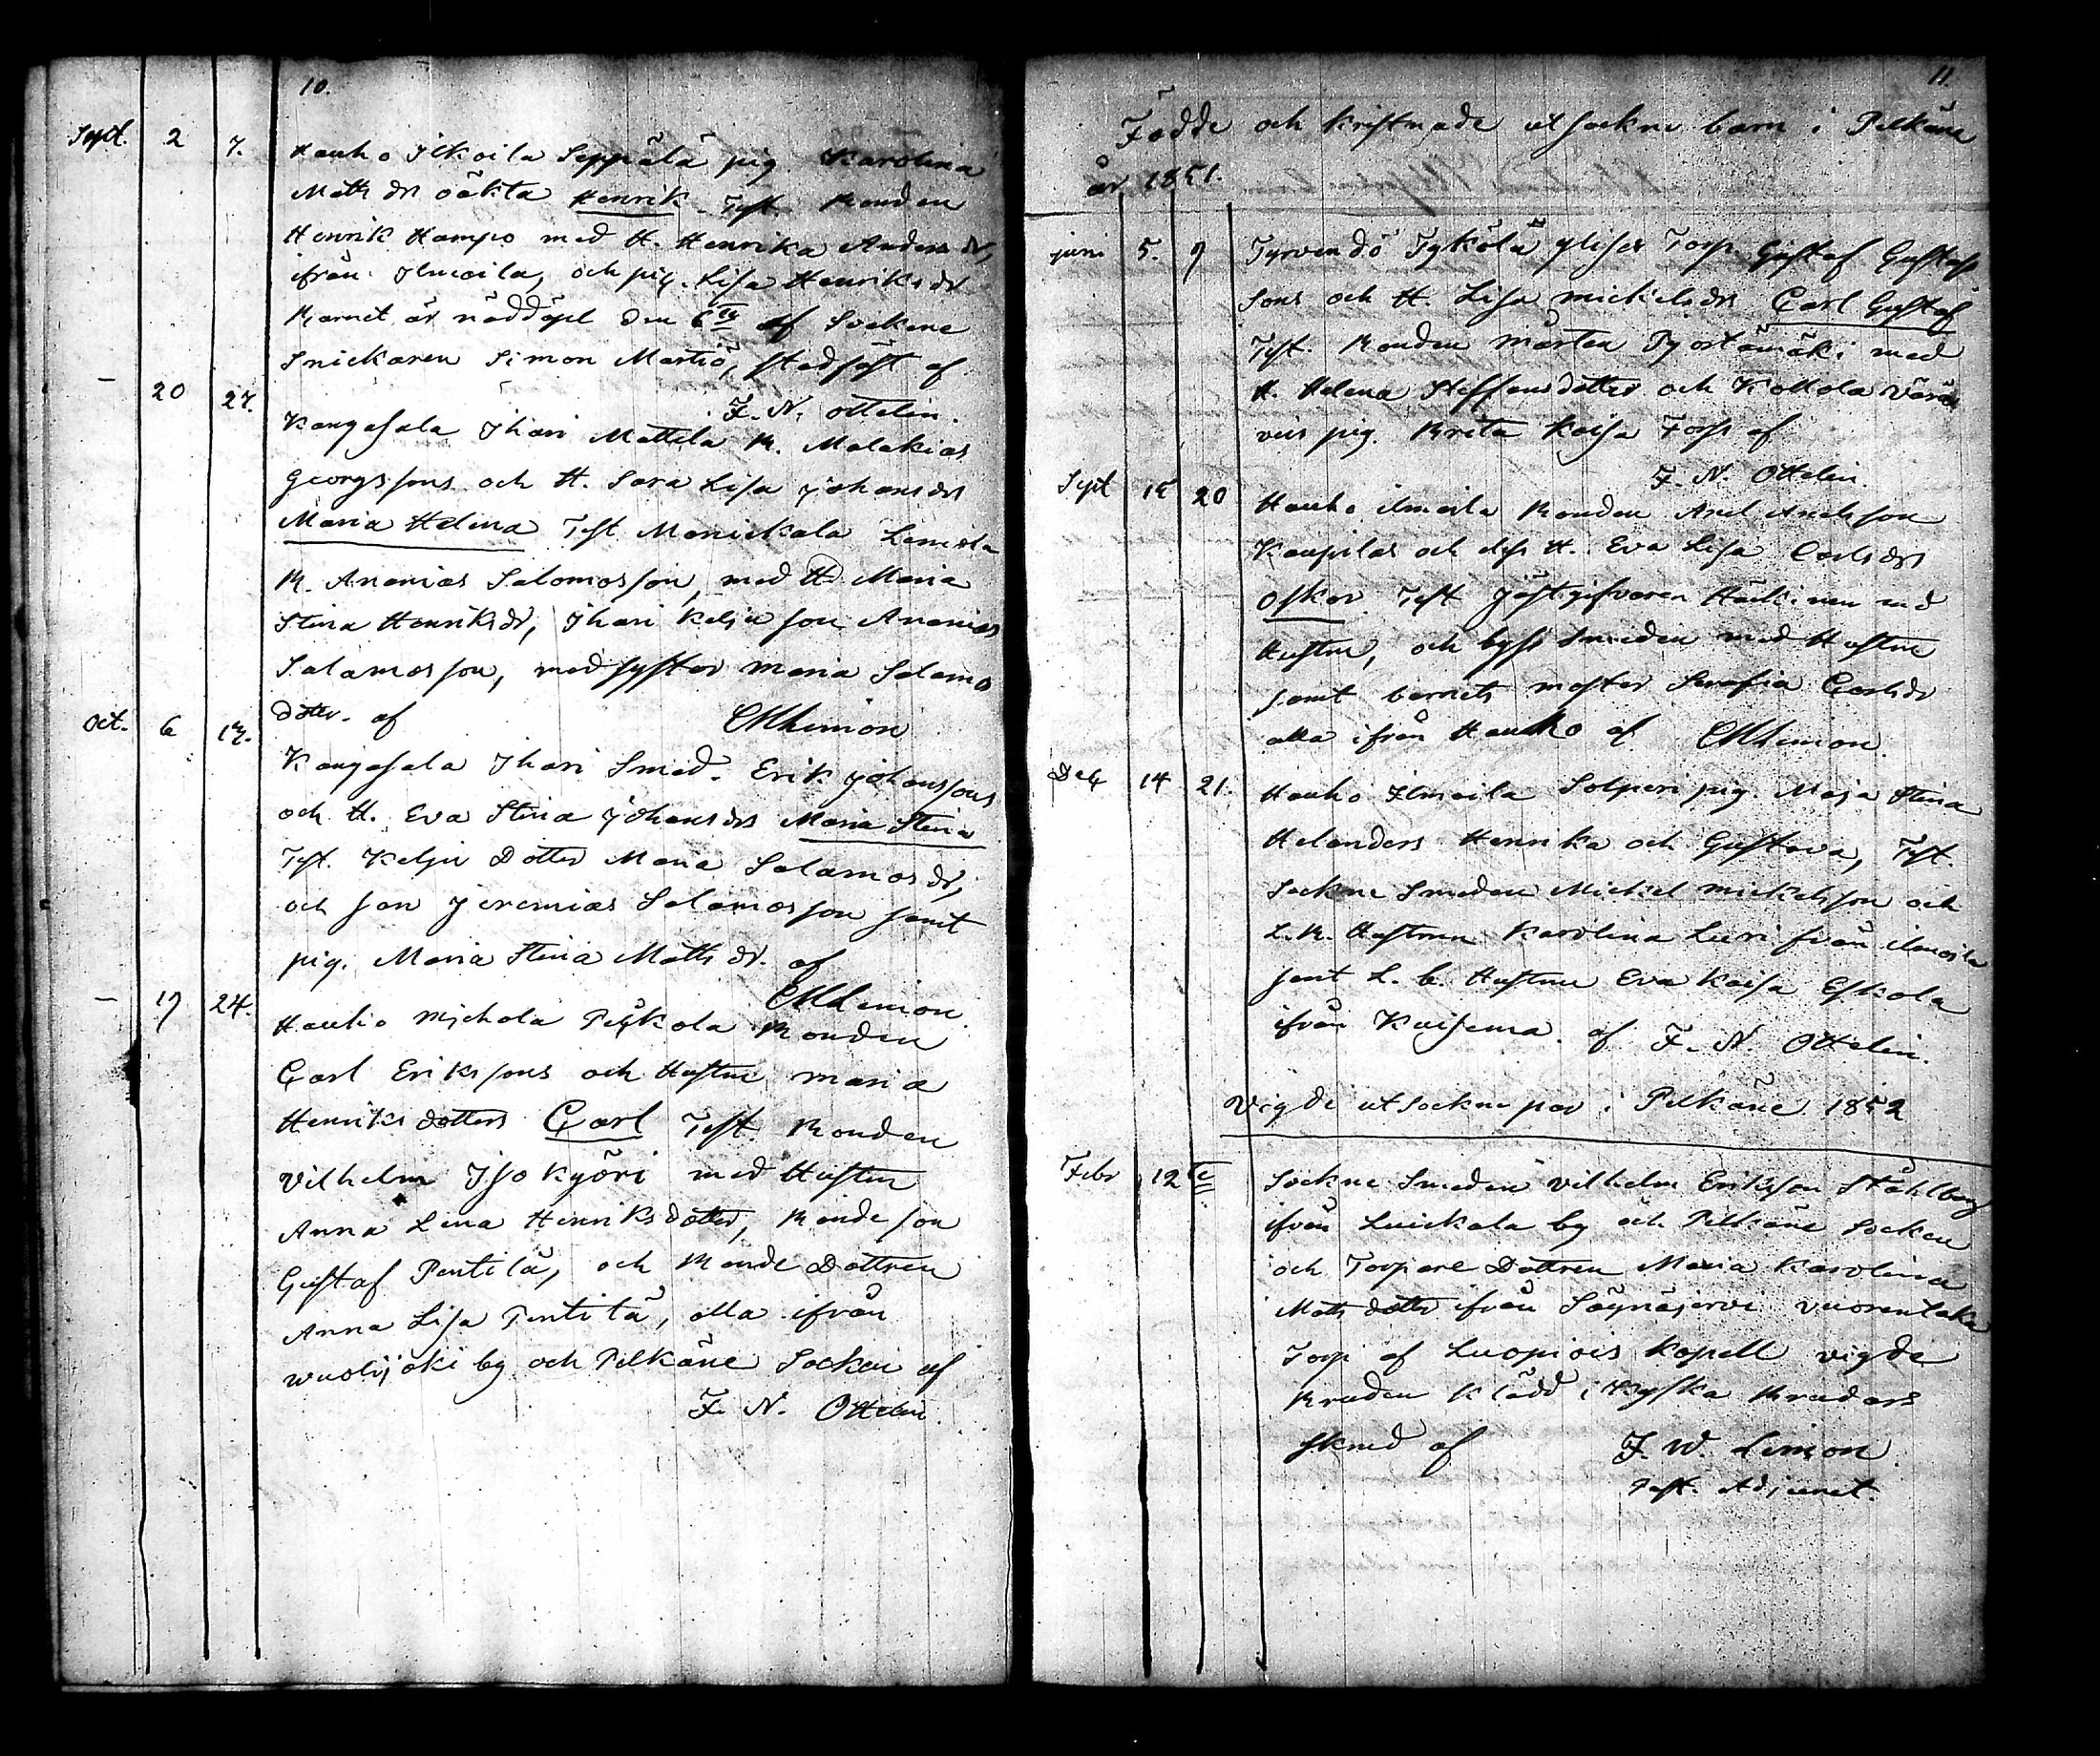 10.
Sept. 2 7. Hauho Ilkoila Seppälä pig. Karolina
Matts dr oäkta Henrik Test. Bonden
Henrik Hampo med H. Henrika Anders dr,
ifrån Ilmoila, och pig. Lisa Henriks dr
Barnet är nöddöpt den 6te af Sockne
Snickaren Simon Martiö, stadfäst af
F. N. Ottelin.
— 20 27. Kangasala Ihari Mattila B. Malakias
Georgssons och H. Sara Lisa Johans drs
Maria Helena Test Manickala Lemola
B. Ananias Salomosson, med H. Maria
Stina Henriksdr, Ihari Kelju son Ananias
Salamosson, med syster Maria Salamos
dotter. af
Oct. 6 12. Kangasala Ihari Smed. Erik Johanssons
och H. Eva Stina Johans drs Maria Stina
Test. Kelju Dotter Maria Salamos dr,
och son Jeremias Salamosson samt
pig. Maria Stina Matts dr. af
— 19 24. Hauho Bonden
Carl Erikssons och Hustru Maria
Henriks dotters Carl Test. Bonden
Vilhelm Iso Kyöri med Hustru
Anna Lena Henriksdotter, Bonde son
Gustaf Pentilä, och Bonde Dottren
Anna Lisa Pentilä, alla ifrån
Wuolijoki by och Pelkäne Socken af
F. N. Ottelin.
11.
Födde och Kristnade utsockne barn i Pelkäne
år 1851.
juni 5. 9 Tyrvendö Tykölä Torp. Gustaf Gustafs
sons och H. Lisa Mickelsdrs Carl Gustaf
Test. Bonden Mårten Pyörtämäki med
H. Helena Steffansdotter och Kollola
pig. Brita Kaisa Torp af
F. N. Ottelin.
Sept 15 20 Hauho Ilmoila Bonden Axel Andersson
Kaupilas och dess H. Eva Lisa Carls drs
Oskar Test Gästgifvaren med
Hustru, och bys Smeden med Hustru
samt barnets moster Serafia Carlsdr
alla ifrån Hauho af
Dec 14 21. Hauho Ilmoila Solperi pig. Maja Stina
Helanders Henrika och Gustava, Test.
Sockne Smeden Mickel Mickelsson och
L. B. Hustrun Karolina Leeri från Ilmoila
samt L. B. Hustru Eva Kaisa Eskola
ifrån Kuisema. af F. N. Ottelin.
Vigde utsockne par i Pelkäne 1852
Febr 12te Sockne Smeden Vilhelm Eriksson Ståhlberg
ifrån Luickala by och Pelkäne Socken
och Torpare Dottren Maria Karolina
Matts dotter ifrån Vuorentaka
Torp af Luopiois Kapell vigde
Bruden Klädd i Ryska Brudars
skrud af F. W. Limon
Past. Adjunct.